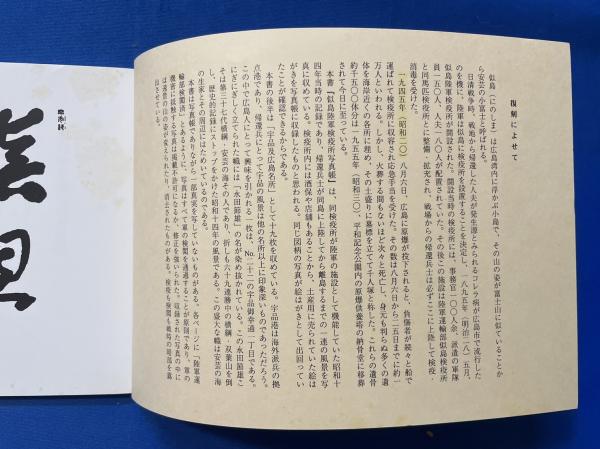 復刻によせて
似島(にのしま)は広島湾内に浮かぶ小島で、その山の姿が富士山に似ていることか
ら安芸の小富士と呼ばれる。
日清戦争時、戦地から帰還した人夫が発生源とみられるコレラ病が広島市で流行した
のを機に、陸軍は似島に検疫所を設置することを決定し、一八九五年(明治二八)五月、
似島陸軍検疫所が開設された。開設当時の検疫所には、事務官一〇〇人余、派遣の軍隊
員一五〇人、人夫一八〇人が配置されていた。その後この施設は陸軍運輸部似島検疫所
と同馬匹検疫所とに整備・拡充され、戦場からの帰還兵士は必ずここに上陸して検疫・
消毒を受けた。
一九四五年(昭和二〇)八月六日、広島に原爆が投下されると、負傷者が続々と船で
運ばれて検疫所に収容され応急手当を受けた。その数は八月六日から二五日までに約一
万人といわれる。しかし、火葬する間もないほど次々と死亡し、身元も判らぬ多くの遺
体を海岸近くの各所に埋め、その土盛りに墓標を立てて千人塚と称した。これらの遺骨
約千五〇〇体分は一九五五年(昭和三〇)、平和記念公園内の原爆供養塔の納骨堂に移葬
されて今日に至っている。
本書『似島陸軍検疫所写真帳』は、同検疫所が陸軍の施設として機能していた昭和十
四年当時の記録であり、帰還兵士が同島に上陸してから離島するまでの一連の風景を写
真に収めている。検疫所内には酒保や店舗もあることから、土産用に売られていた絵は
がきを写真帳に収録したものと思われる。同じ図柄の写真が絵はがきとして出回ってい
たことが確認できるからである。
本書の後半は「宇品及広島名所」として十九枚を収めている。宇品港は海外派兵の拠
点港であり、帰還兵にとって宇品の風景は他の名所以上に印象深いものであっただろう。
この中で広島人にとって興味を引かれる一枚は、No.二十二の宇品御幸通一丁目である。
にぎにぎしく立てられた幟には「永田節雄」の名が染め抜かれている。この永田節雄こ
そは第三十八代横綱・安芸の海その人であり、折しも六十九連勝中の横綱・双葉山を倒
し、歴史的記録にストップをかけた昭和十四年の風景である。この盛大な幟は安芸の海
の生家とその周辺にはためいているのである。
本書は写真帳でありながら一部真実を写していないものがある。各ページに「陸軍運
輸部検閲済」とあるように、写真はすべて軍の検閲を通過することが原則であり、軍の
機密に抵触する写真は掲載不許可になるか、修正を強いられた。収録された写真の中に
は遠景の山の姿が変えられたり、消去されたものがある。検疫も検閲も戦時の暗部を露
出させている。